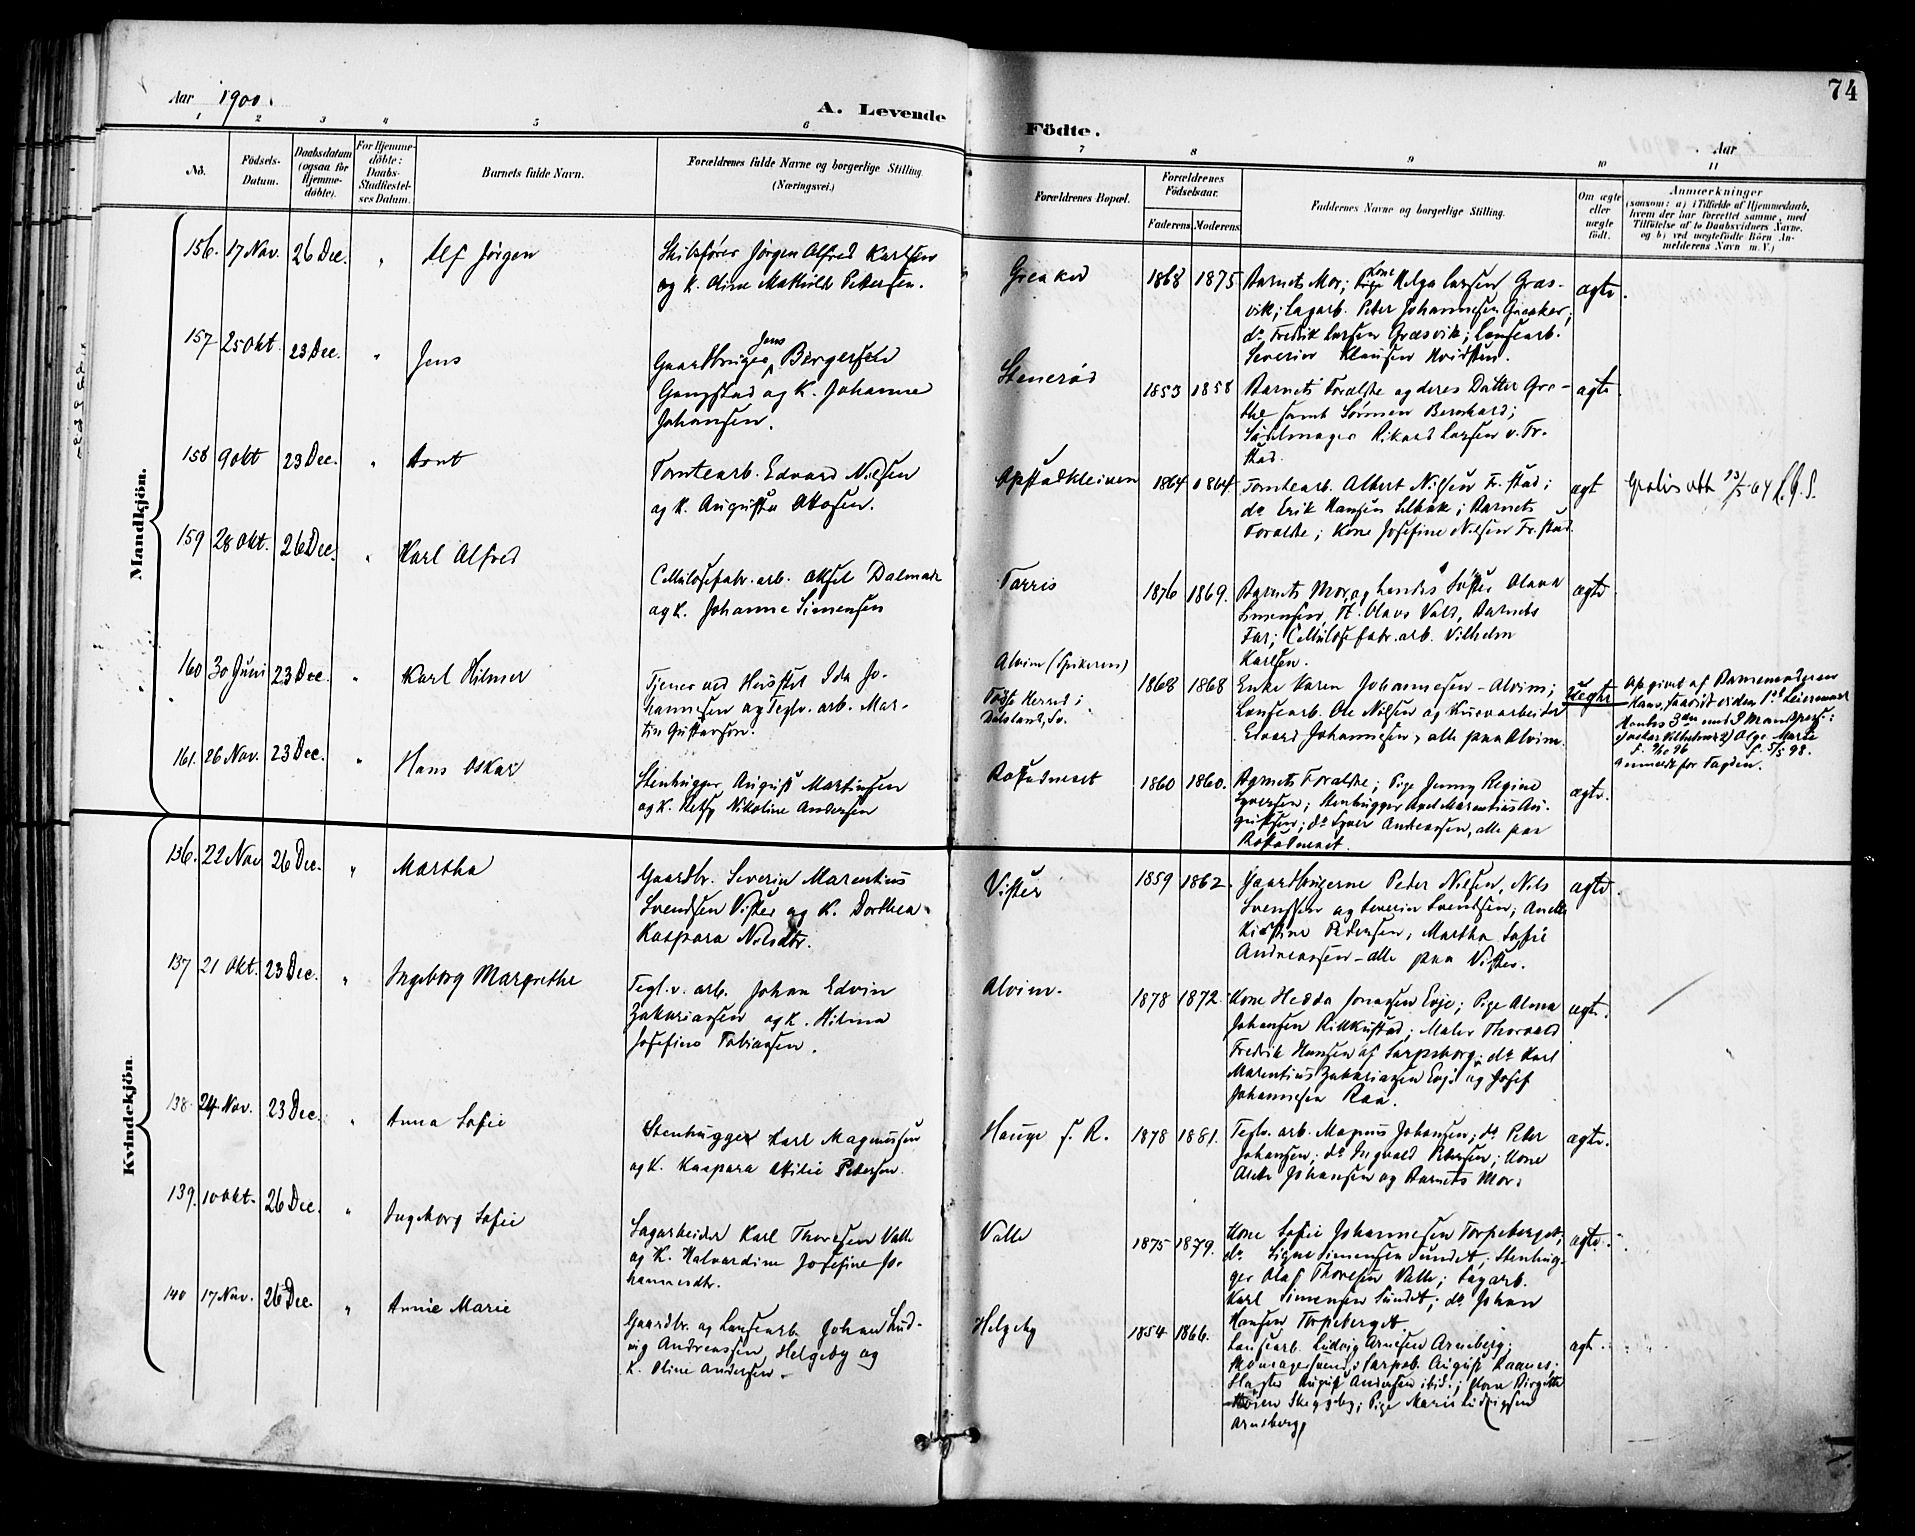 74
Aar 1900.
A. Levende
Födte.
Aar
1 2 3 4 5 6
7 8 9 10 11
No.
Födsels-
Datum.
Daabsdatum
(ogsaa for
Hjemme-
döbte).
For Hjemme-
döbte:
Daabs-
Stadfæstel-
ses Datum.
Barnets fulde Navn.
Forældrenes fulde Navne og borgerlige Stilling.
(Næringsvei.)
Forældrenes Bopæl.
Forældrenes
Födselsaar.
Faderens. Moderens.
Faddernes Navne og borgerlige Stilling.
Om ægte
eller
uægte
födt.
Anmærkninger
(saasom: a) i Tilfælde af Hjemmedaab,
hvem der har forrettet samme, med
Tilföielse af to Daabsvidners Navne,
og b) ved uægtefödte Börn An-
melderens Navn m. V.)
Mandkjön.
156. 17 Nov. 26 Dec. " Alf Jørgen
Skibsfører Jørgen Alfred Karlsen
og K. Oline Mathilde Pettersen.
Greaker 1868 1875
Barnets Mor; Kone Helga Larsen Græs-
vik; Sagarb. Peter Johannesen Greaker;
do Fredrik Larsen Græsvik; Lønsearb.
Severin Klausen Hvidsten.
ægte.
157 25 Okt. 23 Dec. " Jens
Gaardbruger Jens Børgersen
Gangstad og K. Johanne
Johansen.
Stenerød 1853 1858
Barnets Forældre og deres Datter Gre-
the samt Sønnen Bernhard;
Rikard Larsen v. Fr.
stad.
ægte
158 9 Okt 23 Dec. " Arnt
Tomtearb. Edvard Nilsen
og K. Augusta Ottosen.
Apstadkleiven 1864 1864
Tomtearb. Albert Nilsen Fr.stad;
do Erik Hansen Lilbæk; Barnets
Forældre; Kone Josefine Nilsen Fr.stad
ægt
Gratis att 23/5 04
159 28 Okt. 26 Dec. " Karl Alfred
Cellulosefabr.arb. Aksel Dalmark
og K. Johanne Simensen
Torris 1876 1869.
Barnets Mor og hendes Søster Olava
Simensen, H. Olavs Vold, Barnets
Far; Cellulosefabr.arb. Vilhelm
Karlsen.
ægte
160 30 Juni 23 Dec. " Karl Hilmer
Tjener ved Ida Jo-
hannesen og Teglv. arb. Mar-
tin Gustavson.
Alvim (Spikeren)
Dalsland, Sv.
1868 1868
Enke Karen Johannesen - Alvim;
Lønsearb. Ole Nilsen og
Edvard Johannesen, alle paa Alvim.
uægte
Opgivet af Barnemoderen
Hans 1ste Leiermaal
Hendes 3die med 2 Mandspers.:
161. 26 Nov. 23 Dec. " Hans Oskar
Stenhugger August Martinsen
og K. Betsy Nikoline Andersen
1860 1860.
Barnets Forældre; Pige Jenny Regine
Syversen; Stenhugger Axel Marentius Au-
gustsen; do Syver Andreassen, alle paa
ægte.
Kvindekjön.
136. 22 Nov 26 Dec. " Martha
Gaardbr. Severin Marentius
Svendsen Vister og K. Dorthea
Kaspara Nilsdtr.
Vister 1859 1862.
Gaardbrugerne Peder Nilsen, Nils
Svendsen og Severin Svendsen; Anette
Kristine Pedersen, Martha Sofie
Andreassen - alle paa Vister.
ægte.
137 21 Okt. 23 Dec. " Ingeborg Margrethe
Tegl.v. arb. Johan Edvin
Zakariassen og K. Hilma
Josefine Tobiassen.
Alvim. 1878 1872.
Kone Hedda Jonassen Evje; Pige Alma
Johansen Rikkustad; Maler Thorvald
Fredrik Hansen af Sarpsborg; do Karl
Marentius Zakariassen Evje og Josef
Johannesen Raa.
ægte.
138. 24 Nov. 23 Dec. " Anna Sofie
Stenhugger Karl Magnussen
og K. Kaspara Otilie Pedersen.
Hauge f. R. 1878 1881.
Teglv. arb. Magnus Johansen; do Peter
Johansen; do Ingvald Petersen; Kone
Anette Johansen og Barnets Mor.
ægte.
139. 10 Okt. 26 Dec. " Ingeborg Sofie
Sagarbeider Karl Thoresen Valle
og K. Halvardine Josefine Jo-
hannesdtr.
Valle 1875 1879.
Kone Sofie Johannesen Torpeberget;
do Signe Simensen Sundet; Stenhug-
ger Olaf Thoresen Valle; Sagarb.
Karl Simensen Sundet; do Johan
Hansen Torpeberget.
ægte.
140 17 Nov. 26 Dec. " Annie Marie
Gaardbr. og Lønsearb. Johan Lud-
vig Andreassen, Helgeby og
K. Oline Andersen.
Helgeby 1854 1866.
Lønsearb. Ludvig Arnesen Arneberg;
Sarpsb. August Raanes;
Slagter August Andersen ibid.; Kone Birgitte
Skeggeby; Pige Marie Ludvigsen
Arneberg
ægt.